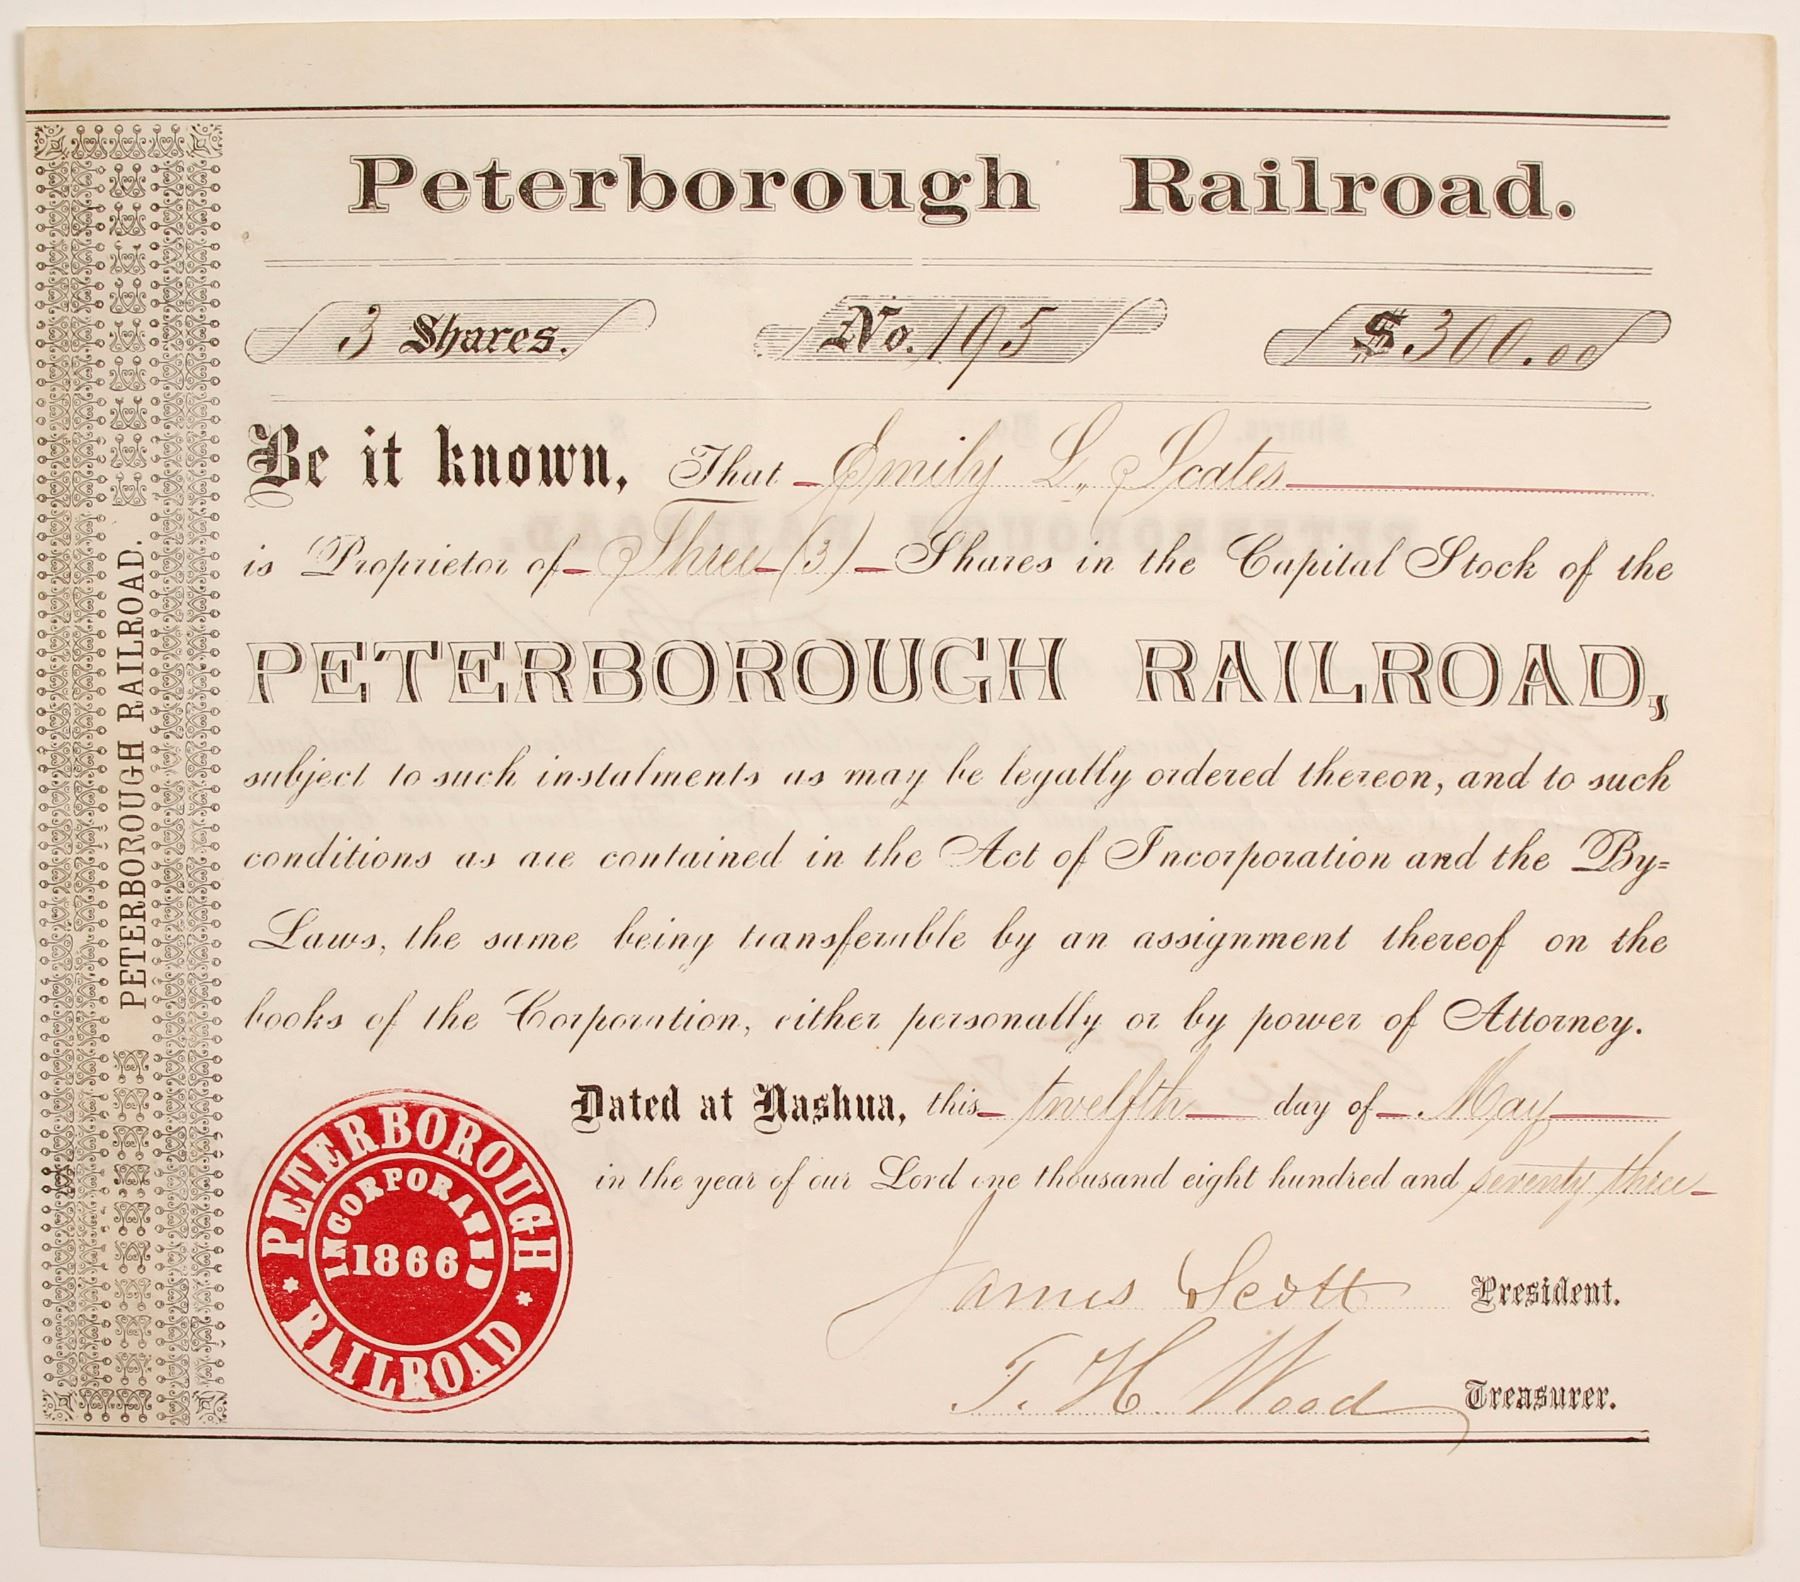 Peterborough Railroad.
3 Shares. No. 195 $300.00
Be it known, That Emily L. Scates
is Proprietor of Three (3) Shares in the Capital Stock of the
PETERBOROUGH RAILROAD,
subject to such instalments as may be legally ordered thereon, and to such
conditions as are contained in the Act of Incorporation and the By=
Laws, the same being transferable by an assignment thereof on the
books of the Corporation, either personally or by power of Attorney.
Dated at Nashua, this twelfth day of May
in the year of our Lord one thousand eight hundred and seventy three
James Scott President.
T. H. Wood Treasurer.
PETERBOROUGH RAILROAD.
PETERBOROUGH
INCORPORATED
1866
RAILROAD